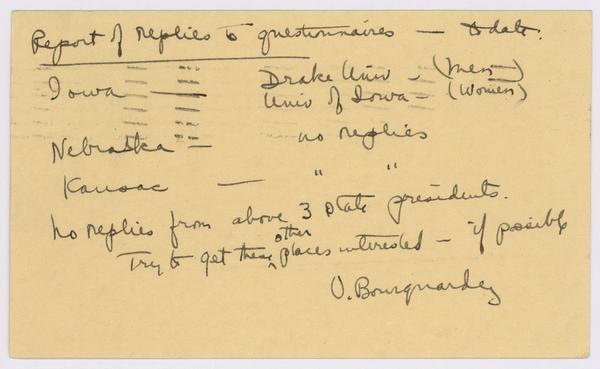 Report of replies to questionnaires — to date:
Iowa — Drake Univ — (Men)
Univ of Iowa — (Women)
Nebraska — no replies
Kansas — " "
No replies from above 3 state presidents.
Try to get these other places interested — if possible
V. Bourquardez